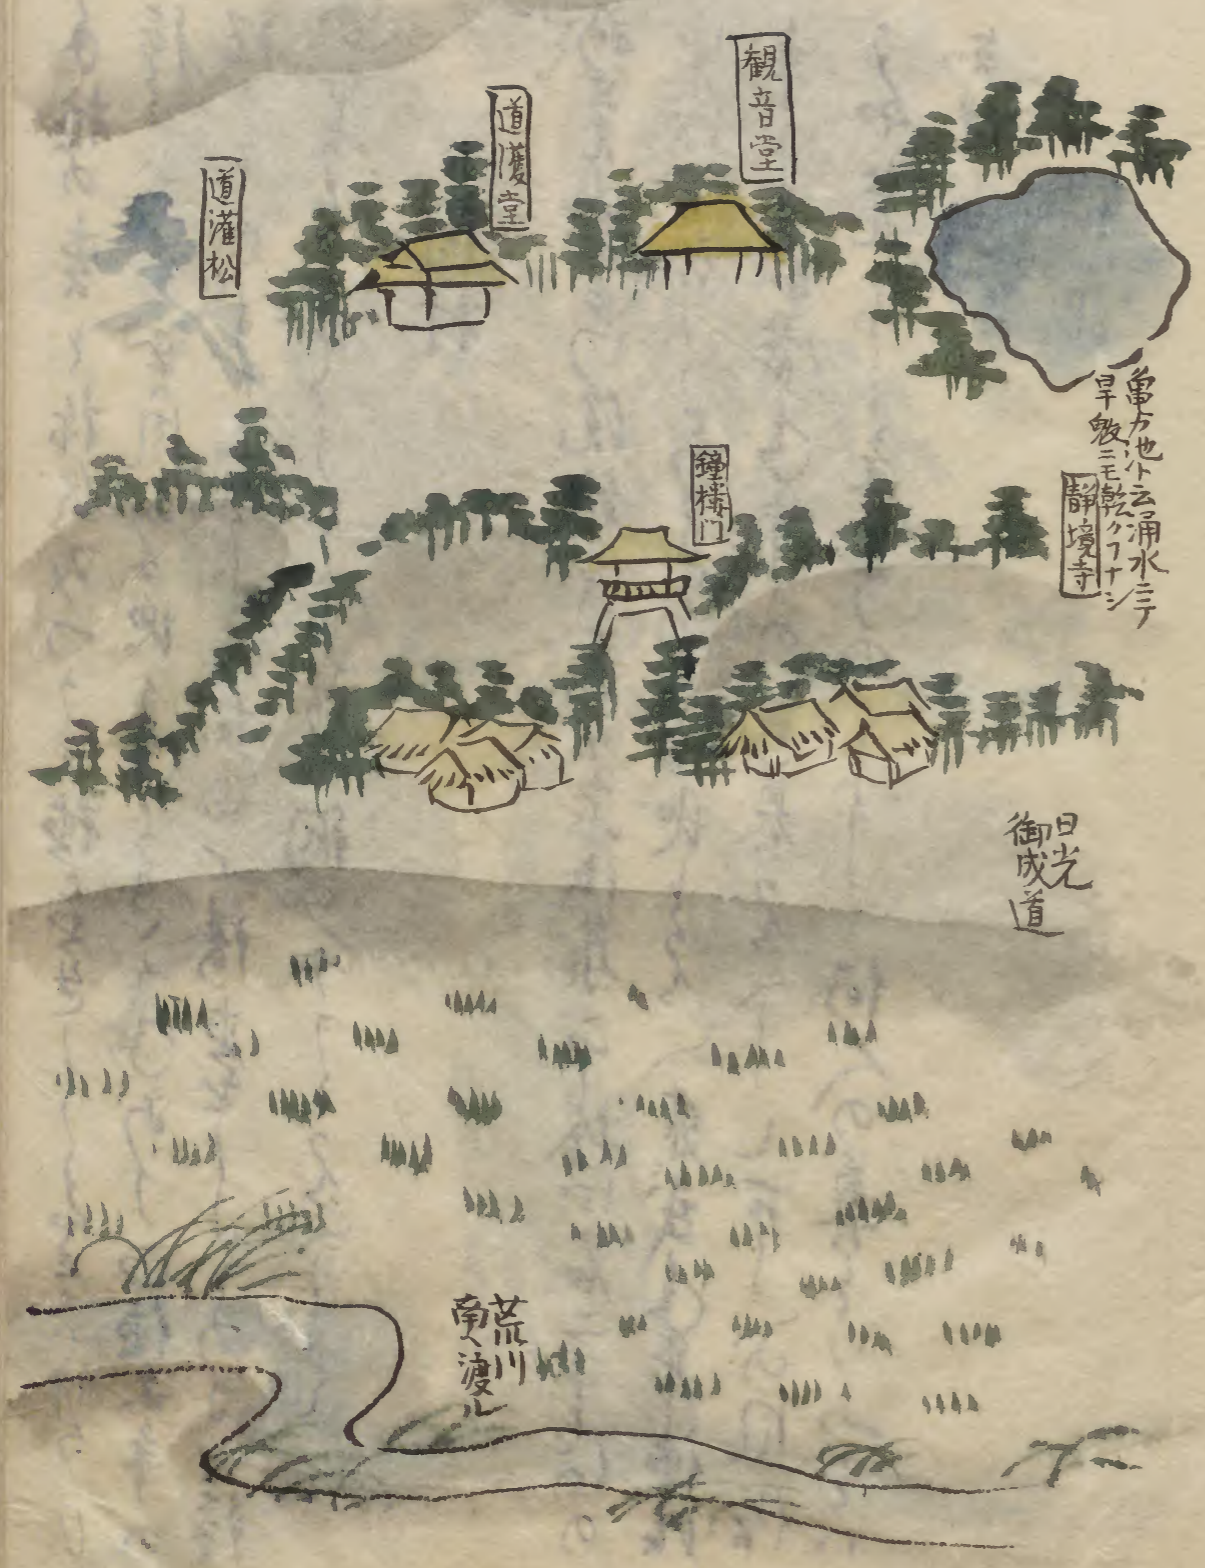 観音堂
道灌堂
道灌松
亀カ池ト云涌水ニテ
旱魃ニモ乾クフナシ
静境寺
鐘楼門
日光
御成道
荒川
南ヘ渡ル